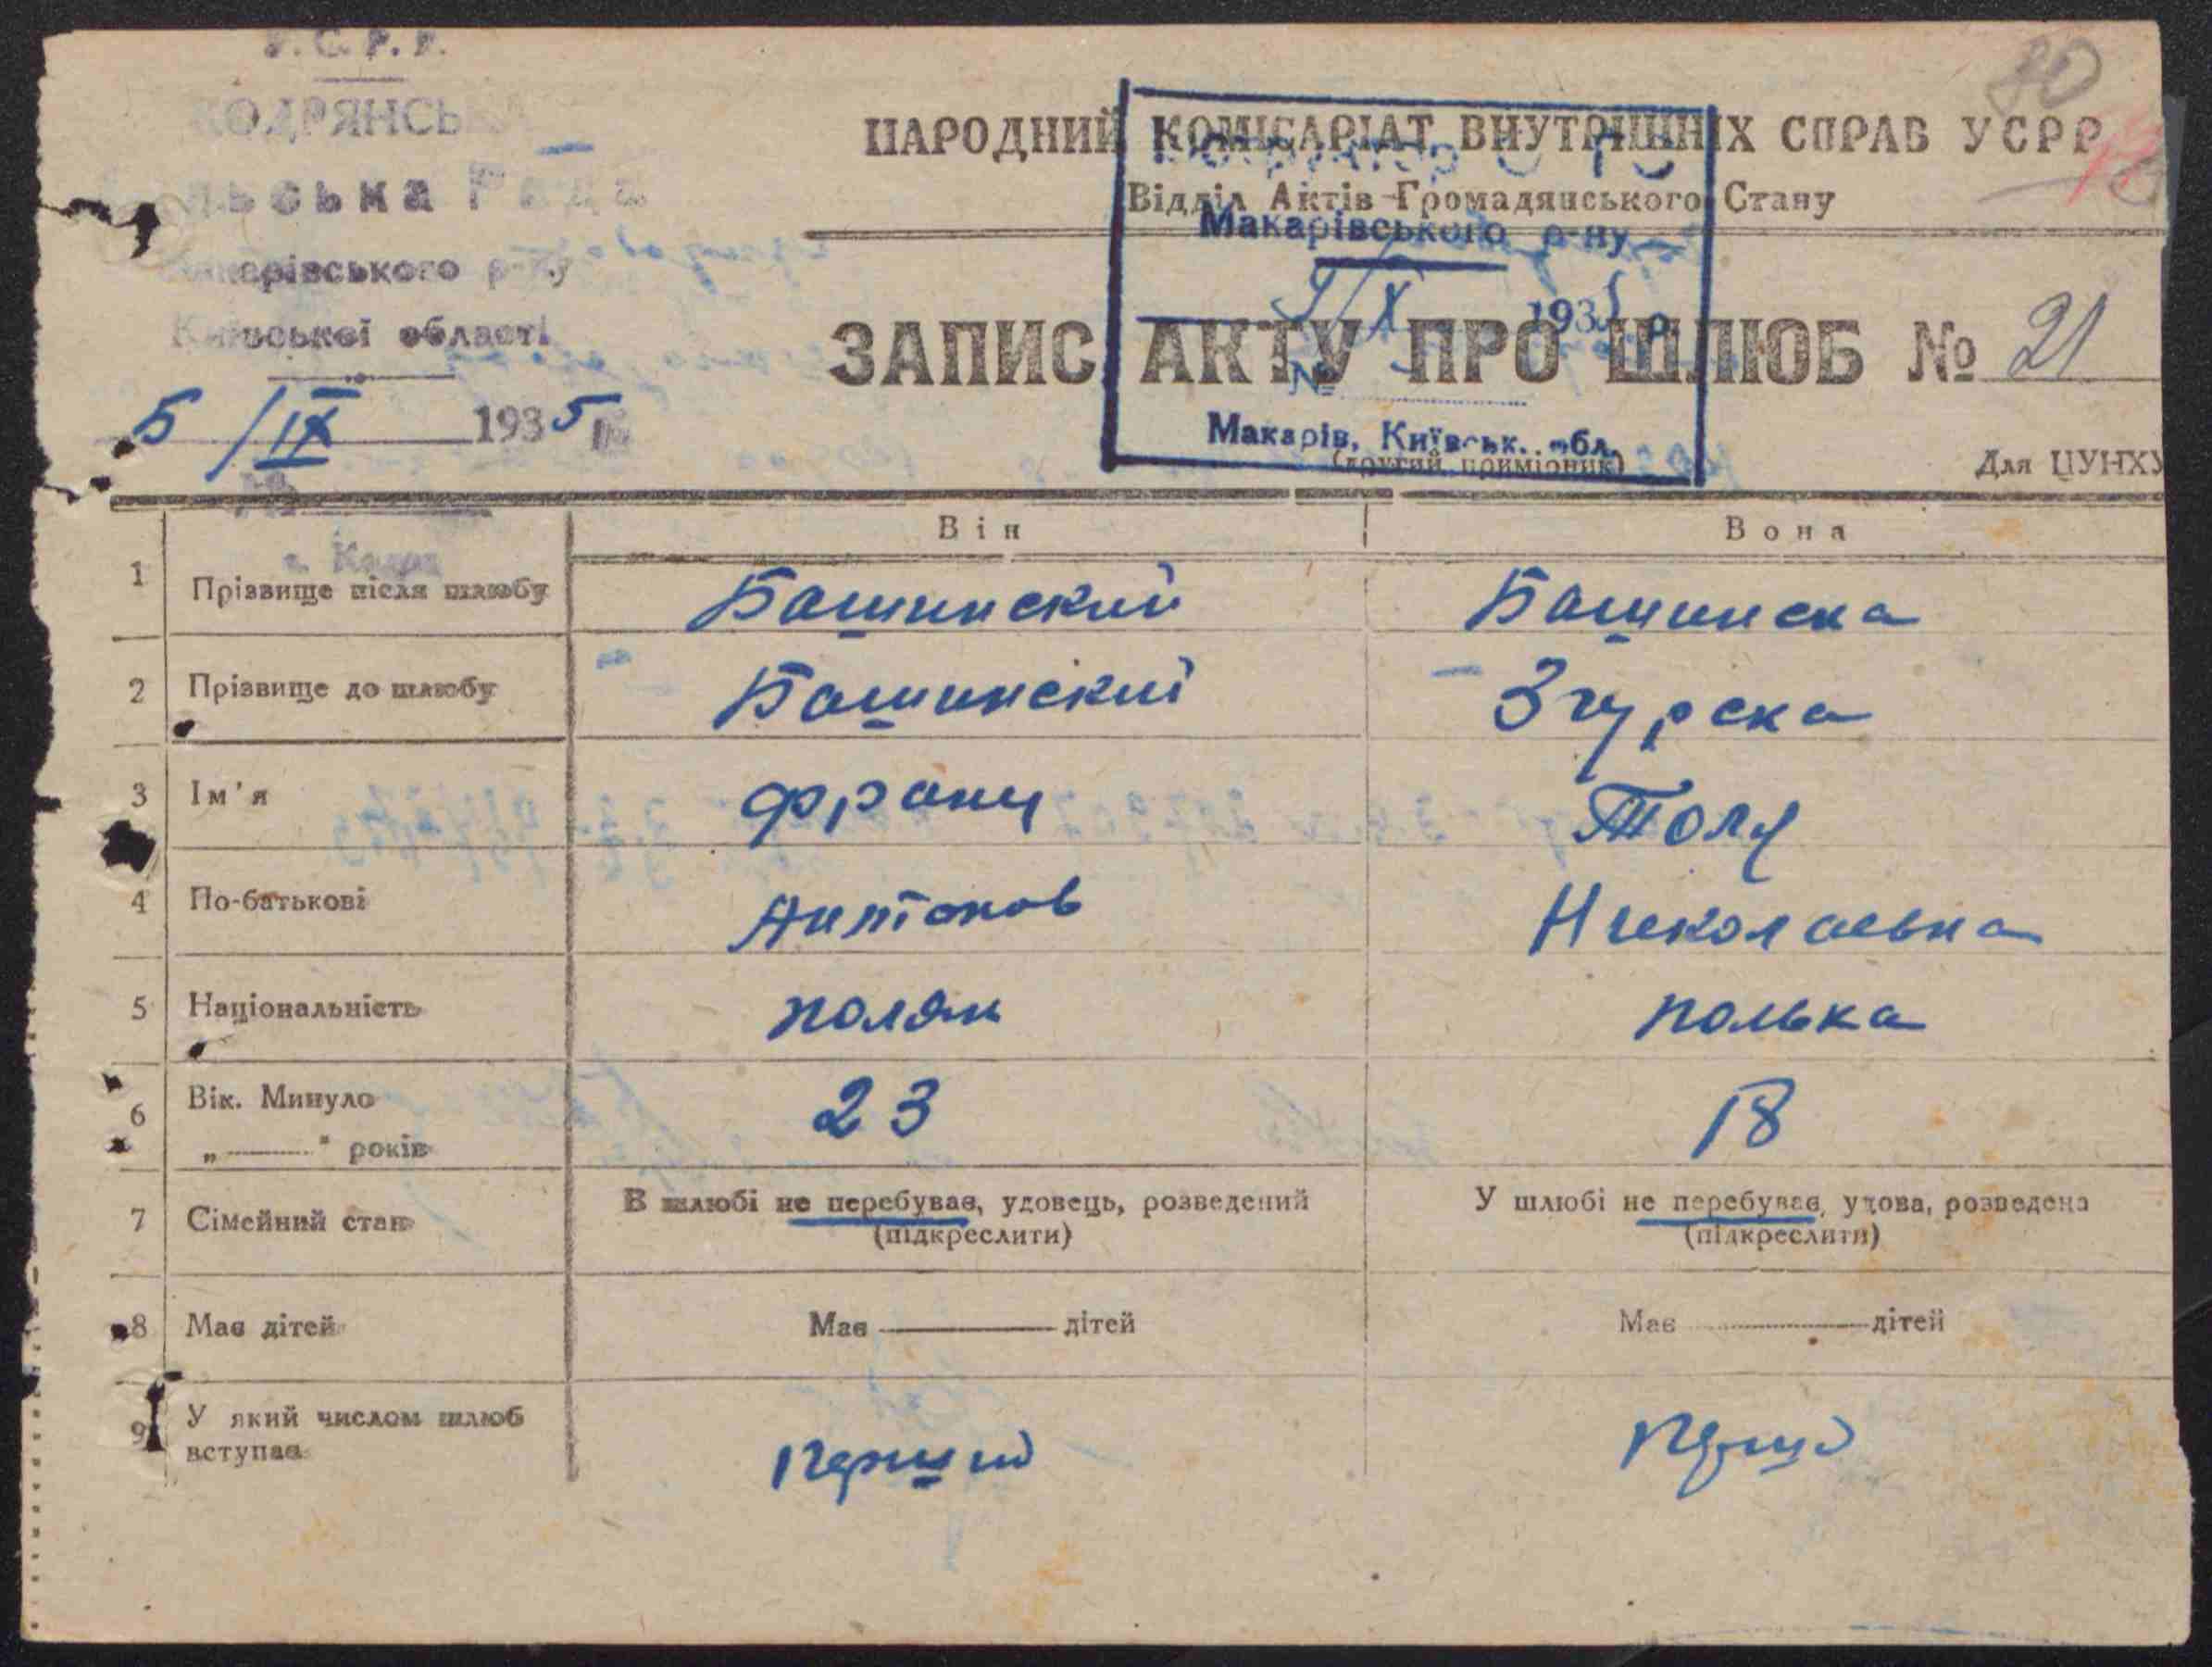 У.С.Р.Р.
КОДРЯНСЬКА
Рада
Макарівського р-ну
Київської області
5/IX 1935
с. Кодра
80
НАРОДНИЙ КОМІСАРІАТ ВНУТРІШНІХ СПРАВ УСРР
Відділ Актів Громадянського Стану
Макарівського р-ну
/X 1935 р.
№
Макарів, Київськ. обл.
ЗАПИС АКТУ ПРО ШЛЮБ № 21
(другий примірник)
Для ЦУНХУ
Він Вона
1 Прізвище після шлюбу Башинский Башинска
2 Прізвище до шлюбу Башинский Згурска
3 Ім'я Франц
4 По-батькові Антонов Николаевна
5 Національність поляк полька
6 Вік. Минуло 23 18
„———" років
7 Сімейний стан В шлюбі не перебуває, удовець, розведений У шлюбі не перебуває, удова, розведена
(підкреслити) (підкреслити)
8 Має дітей Має ——— дітей Має ——— дітей
9 У який числом шлюб
вступає перший